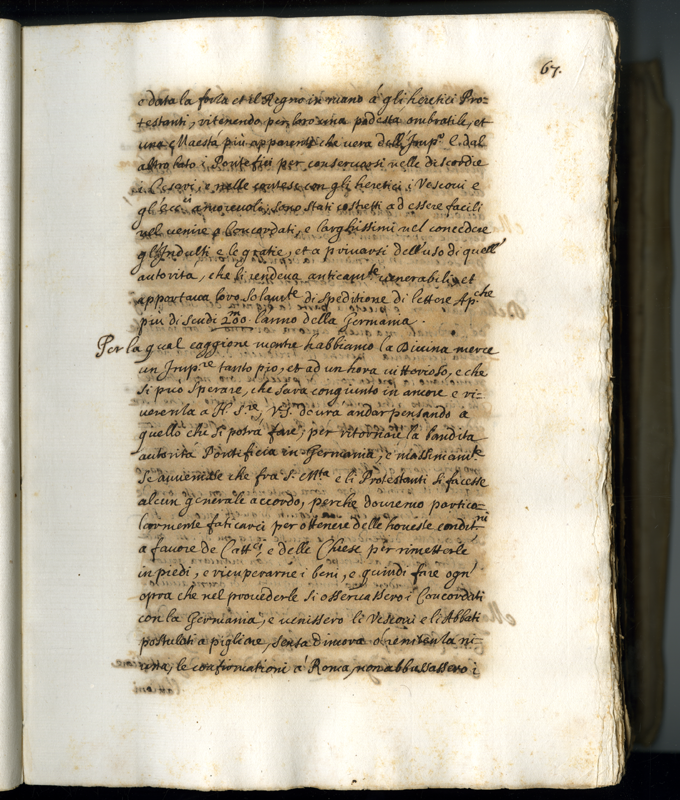 67.
e data la forza et il Regno in mano à gli heretici Pro-
testanti, ritenendo per loro una podestà ombratile, et
una Maestà più apparente che vera dell'Imp.re E dal
altro lato i Pontefici per conservarsi nelle discordie
i Cesari, e nelle contese con gli heretici i Vescovi e
gl'Ecc.ci amorevoli, sono stati costretti ad essere facili
nel venire a Concordati, e larghissimi nel concedere
gl'Indulti e le gratie, et a privarsi dell'uso di quell'
autorità, che li rendeva anticam.te venerabili, et
apportava loro solam.te di speditione di lettere Ap.che
più di scudi l'anno della Germania.
Per la qual caggione mentre habbiamo la Divina mercè
un Imp.re tanto pio, et ad un hora vittorioso, e che
si può sperare, che sarà congiunto in amore e ri-
verenza a N. S.re, V.S. dovrà andar pensando à
quello che si potrà fare, per ritornare la bandita
autorità Pontificia in Germania, e massimam.te
se avvenisse che fra S. M.tà e li Protestanti si facesse
alcun generale accordo, perche dovremo partico-
larmente faticarci per ottenere delle honeste condit.ni
a favore de Catt.ci e delle Chiese per rimetterle
in piedi, e ricuperarne i beni, e quindi fare ogn'
opra che nel provederle si osservassero i Concordati
con la Germania, e venissero li Vescovi e li Abbati
postulati a pigliare, senza dimora ò renitenza ni-
una, le confirmationi à Roma, non abbussassero i